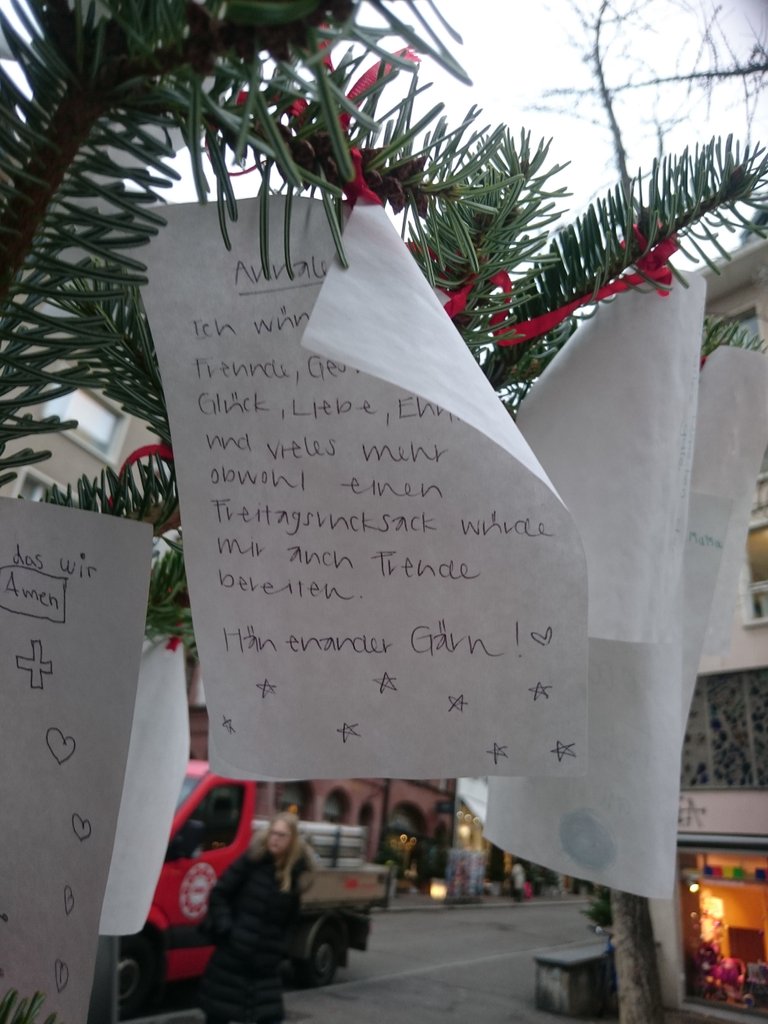 Ich
Freunde,
Glück, Liebe,
und vieles mehr
obwohl einen
Freitagsrucksack würde
mir auch Freude
bereiten.
Hän enander Gärn!
das wir
Amen
Mama